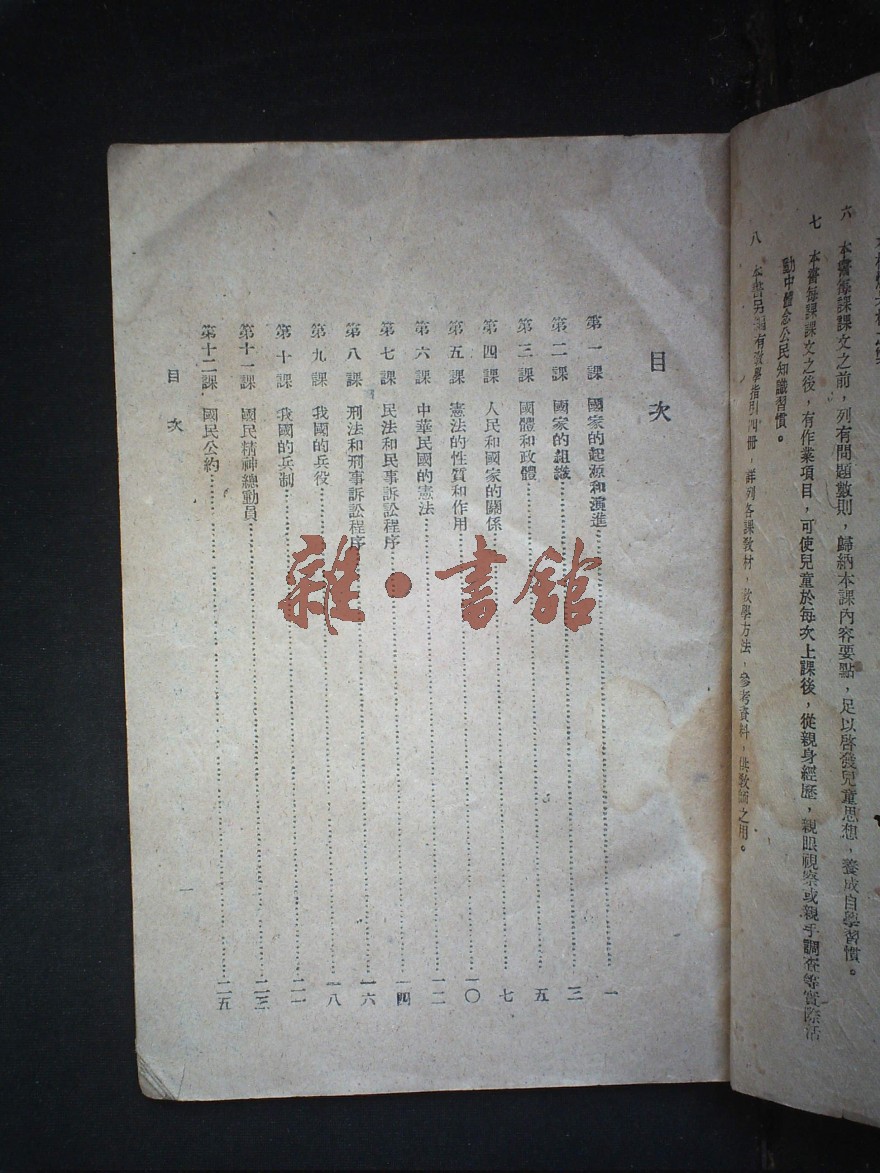 六 本書每課課文之前，列有問題數則，歸納本課內容要點，足以啓發兒童思想，養成自學習慣。
七 本書每課課文之後，有作業項目，可使兒童於每次上課後，從親身經歷，親眼視察或親手調查等實際活
動中體念公民知識習慣。
八 本書另編有教學指引四冊，詳列各課教材，教學方法，參考資料，供教師之用。
目次
第一課 國家的起源和演進 一
第二課 國家的組織 三
第三課 國體和政體 五
第四課 人民和國家的關係 七
第五課 憲法的性質和作用 一〇
第六課 中華民國的憲法 一二
第七課 民法和民事訴訟程序 一四
第八課 刑法和刑事訴訟程序 一六
第九課 我國的兵役 一八
第十課 我國的兵制 二一
第十一課 國民精神總動員 二三
第十二課 國民公約 二五
目次
一
雜·書館